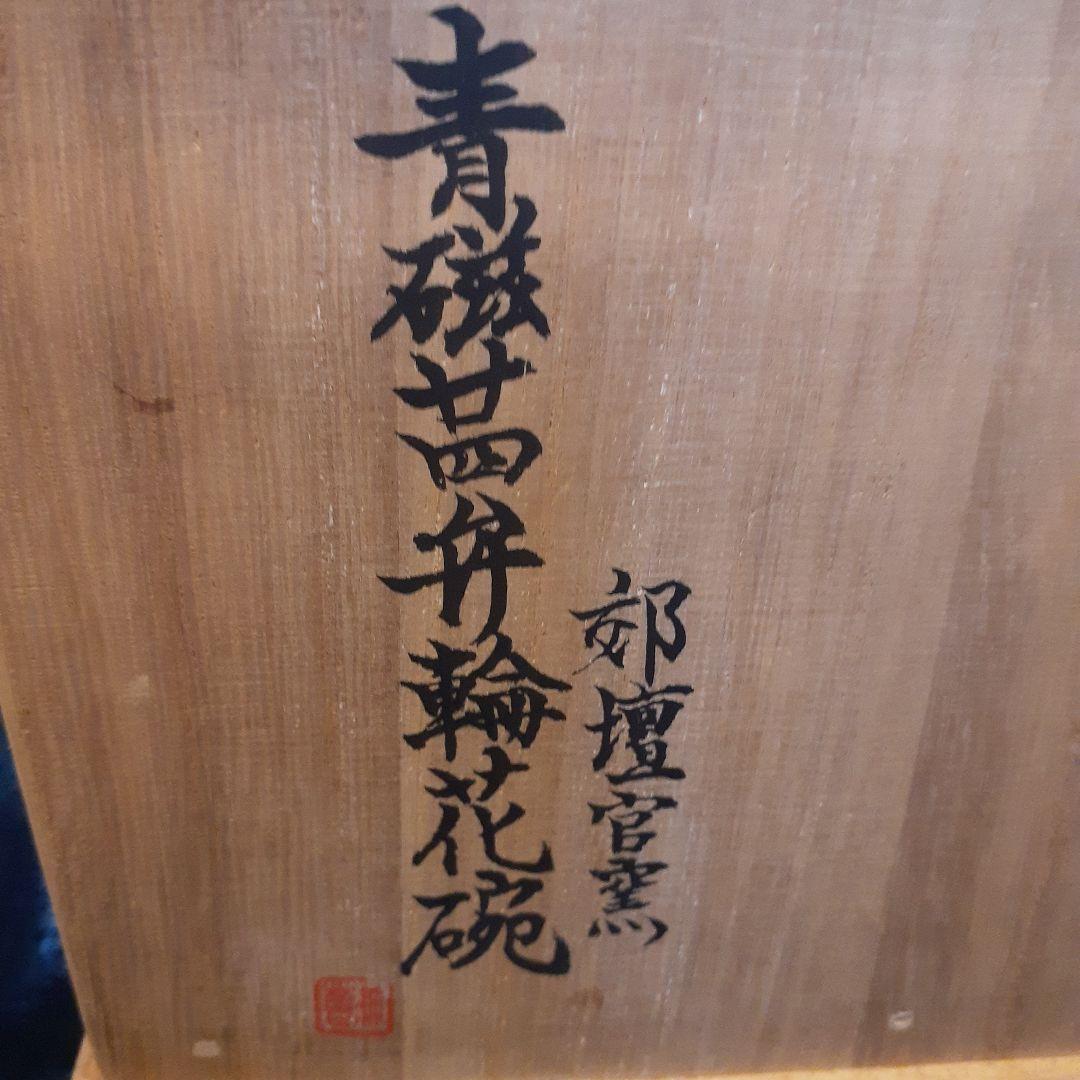 郊壇官窯
青磁廿四弁輪花碗